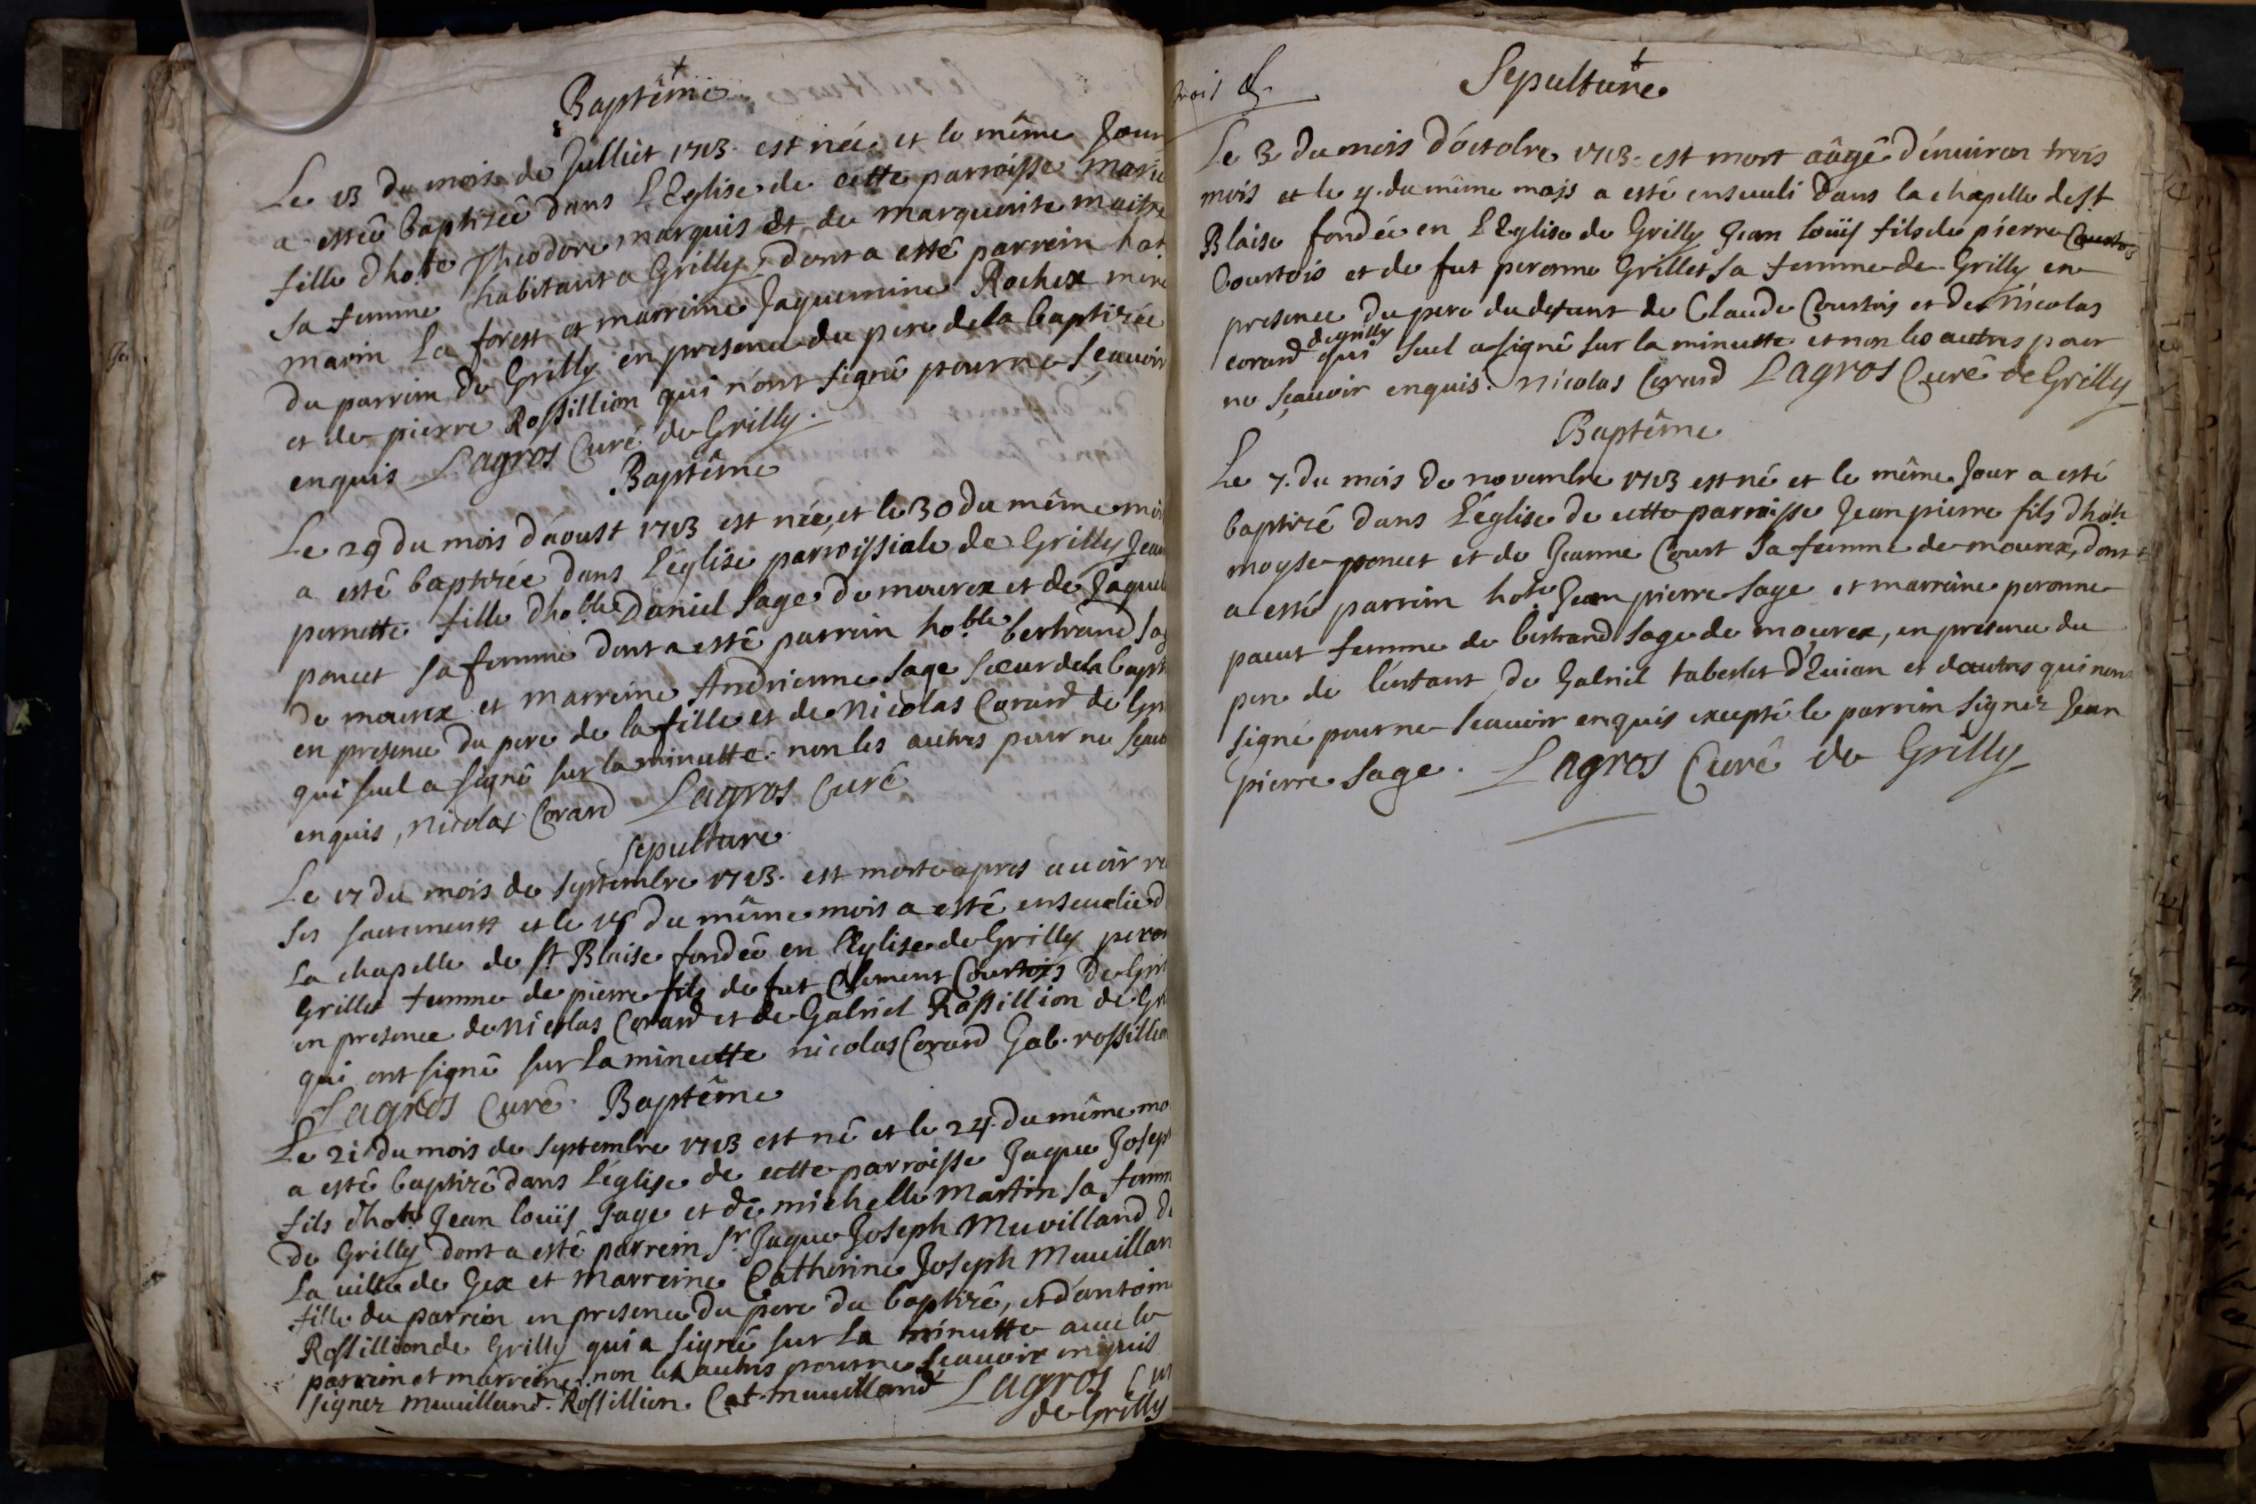 Baptême
Le 13 du mois de Julliet 1713. est née et le même Jour
a esteé baptizeé dans L'Eglise de cette parroisse Marie
fille d'hoble Theodore marquis et de marguerite maistre
sa femme habitant a Grilly, dont a esté parrein hoble
marin La forest et marreine Jaquemine Rochex mere
du parrein de Grilly en presence du pere de la baptizée
et de pierre Rossillion qui n'ont signé pour ne sçauoir
enquis Lagros Curé de Grilly.
Baptême
Le 29 du mois d'aoust 1713 est née, et le 30 du même mois
a esté baptizée dans l'église parroissiale de Grilly Jean
pernette fille d'hoble Daniel Sage de mourex et de Jaque
poncet sa femme dont a esté parrein hoble bertrand Sag
de mourex et marreine Andrienne Sage Sœur de la bapti
en presence du pere de la fille et de Nicolas Corand de Gri
qui seul a signé sur la minutte. non les autres pour ne sçauo
enquis, Nicolas Corand Lagros Curé
Sepulture
Le 17 du mois de Septembre 1713. est morte apres auoir re
ses sacrements et le 18 du même mois a esté enseuelie d
la chapelle de st Blaise fondeé en l'Eglise de Grilly peron
Grillet femme de pierre fils de fut Clement Courtois de Gril
en presence de Nicolas Corand et de Gabriel Rossillion de Gri
qui ont signé sur La minutte nicolas Corand Gab. rossillion
Lagros Curé. Baptême
Le 21 du mois de Septembre 1713 est né et le 24. du même mo
a esté baptizé dans l'église de cette parroisse Jaque Joseph
fils d'hoble Jean louïs Sage et de michelle Martin sa femm
de Grilly dont a esté parrein sr Jaque Joseph Muvilland de
La ville de Gex et Marreine Catherine Joseph Muuillan
fille du parrein en presence du pere du baptizé, et d'antoine
Rossillion de Grilly qui a signé sur La minutte auec le
parrein et marreine. non les autres pour ne sçauoir enquis
signez muuilland. Rossillion. Cat. muuilland Lagros Cur
de Grilly
trois
Sepulture
Le 3 du mois d'octobre 1713. est mort aâgé d'enuiron trois
mois et le 4. du même mois a esté enseueli dans la chapelle de st
Blaise fondée en l'Eglise de Grilly Jean louïs fils de piérre Courtois
Courtois et de fut peronne Grillet sa femme de Grilly en
presence du pere du defunt de Claude Courtois et de Nicolas
de grilly
corand qui seul a signé sur la minutte et non les autres pour
ne sçauoir enquis. Nicolas Corand Lagros Curé de Grilly
Baptême
Le 7. du mois de novembre 1713 est né et le même Jour a esté
baptizé dans L'église de cette parroisse Jean pierre fils d'hoble
moyse poncet et de Jeanne Court sa femme de mourex, dont
a esté parrein hoble Jean pierre Sage et marraine peronne
pacut femme de bertrand Sage de mourex, en presence du
pere de l'enfant de Gabriel tabeslet d'Euian et d'autres qui n'ont
signé pour ne sçauoir enquis excepté le parrein signez Jean
pierre Sage. Lagros Curé de Grilly